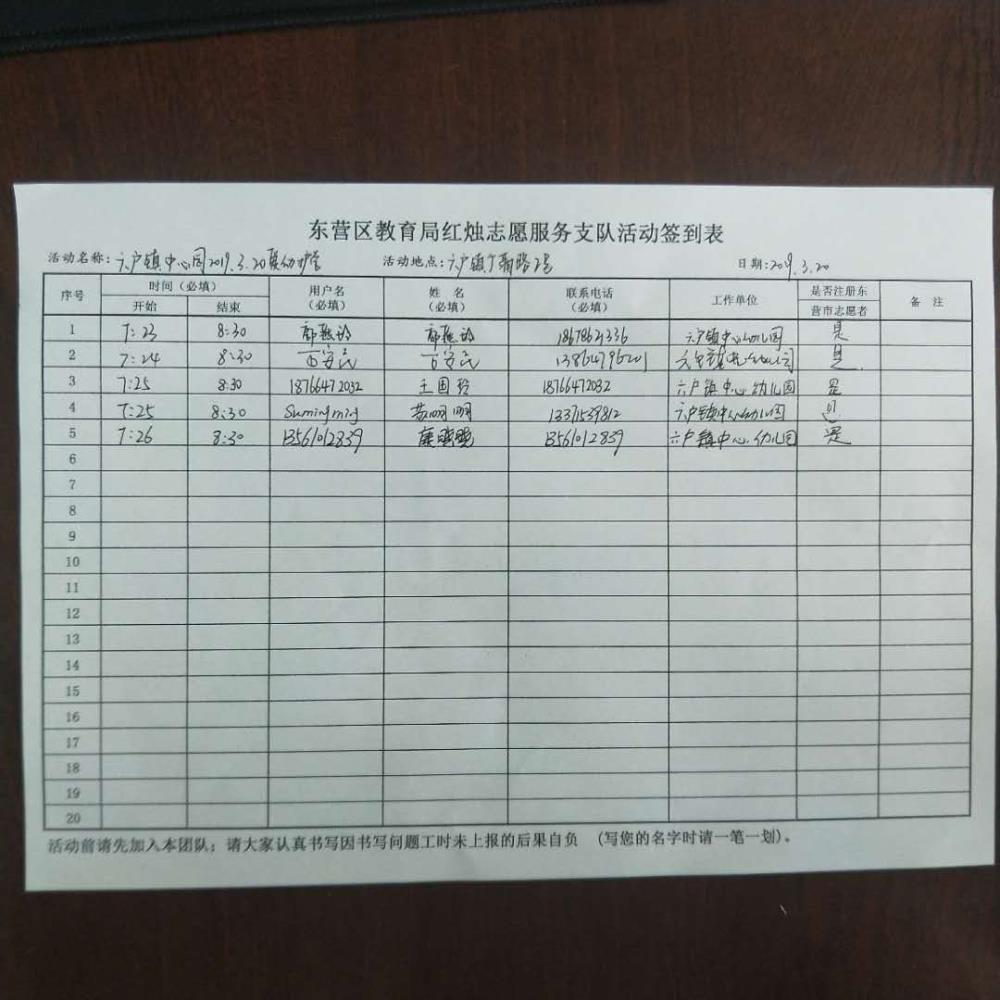 东营区教育局红烛志愿服务支队活动签到表
活动名称：六户镇中心园2019.3.20 活动地点：六户镇 路2号 日期：2019.3.20
序号 时间（必填） 用户名（必填） 姓 名（必填） 联系电话（必填） 工作单位 是否注册东营市志愿者 备 注
开始 结束
1 7:23 8:30 六户镇中心幼儿园 是
2 7:24 8:30 是
3 7:25 8:30 18766472032 王国玲 18766472032 六户镇中心幼儿园 是
4 7:25 8:30 Sumingming 苏明明 六户镇中心幼儿园 是
5 7:26 8:30 13561012839 13561012839 六户镇中心幼儿园 是
6
7
8
9
10
11
12
13
14
15
16
17
18
19
20
活动前请先加入本团队；请大家认真书写因书写问题工时未上报的后果自负 （写您的名字时请一笔一划）。